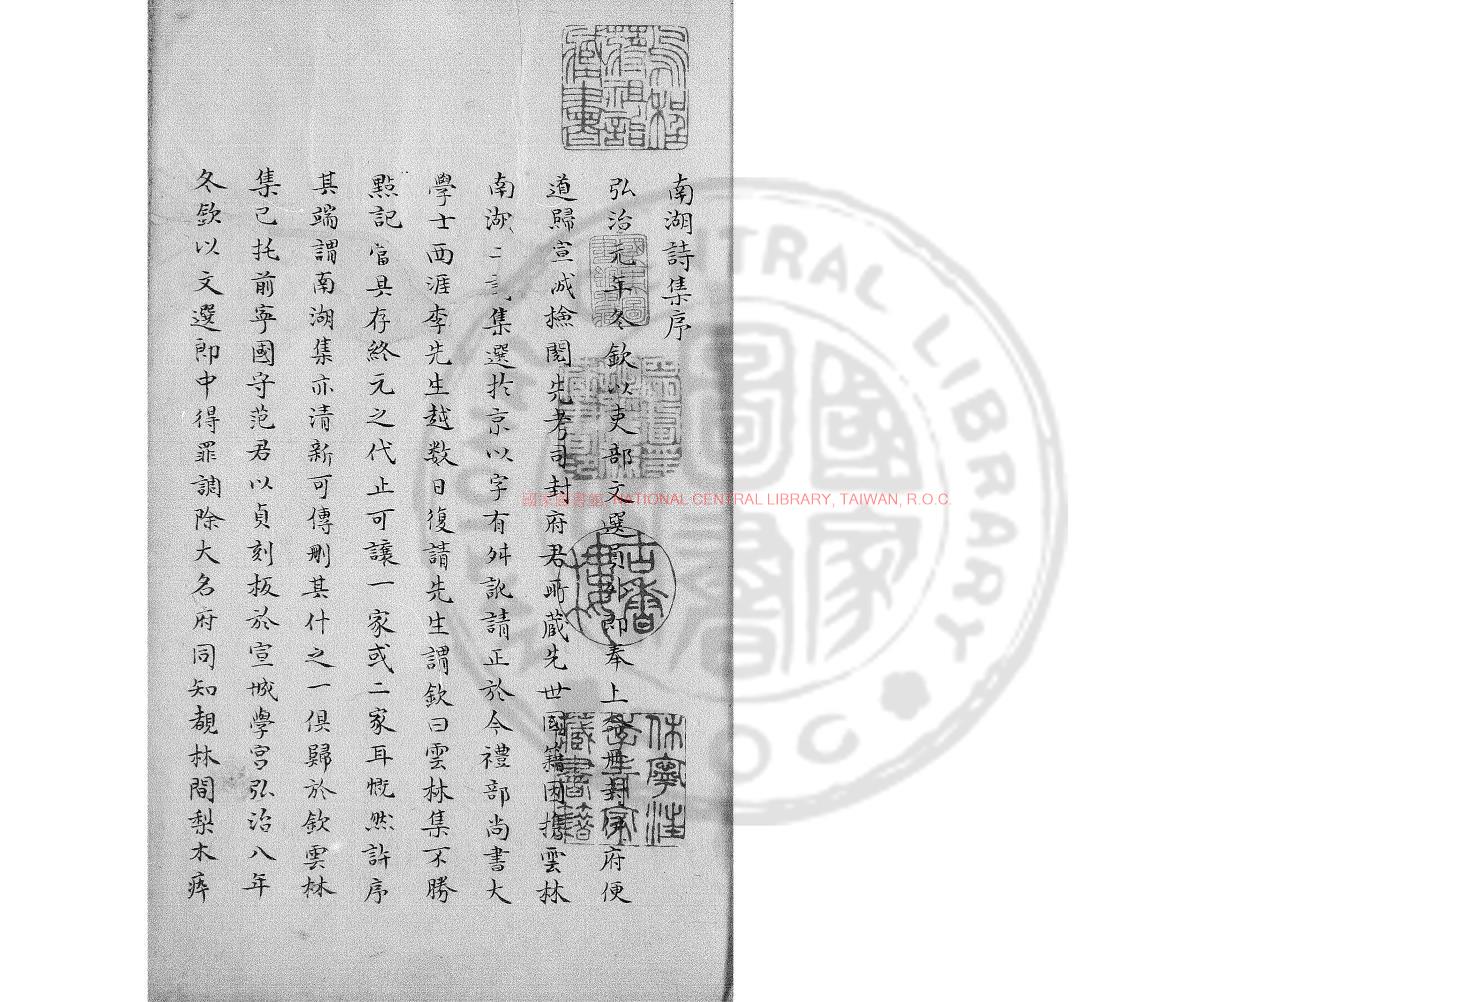 南湖詩集序
弘治元年冬欽以吏部文選員外郎奉上命冊封伊府便
道歸宣城撿閱先考司封府君所藏先世國籍因攜雲林
南湖二詩集選扵京以字有舛訛請正於今禮部尚書大
學士西涯李先生越数日復請先生謂欽曰雲林集不勝
點記當具存終元之代止可讓一家或二家耳慨然許序
其端謂南湖集亦清新可傳刪其什之一俱歸於欽雲林
集已托前寧國守范君以貞刻板於宣城學宮弘治八年
冬欽以文選郎中得罪調除大名府同知覩林間梨木瘁
國家圖書館 NATIONAL CENTRAL LIBRARY, TAIWAN, R.O.C.
古香樓
休寧汪
季青家
藏書籍